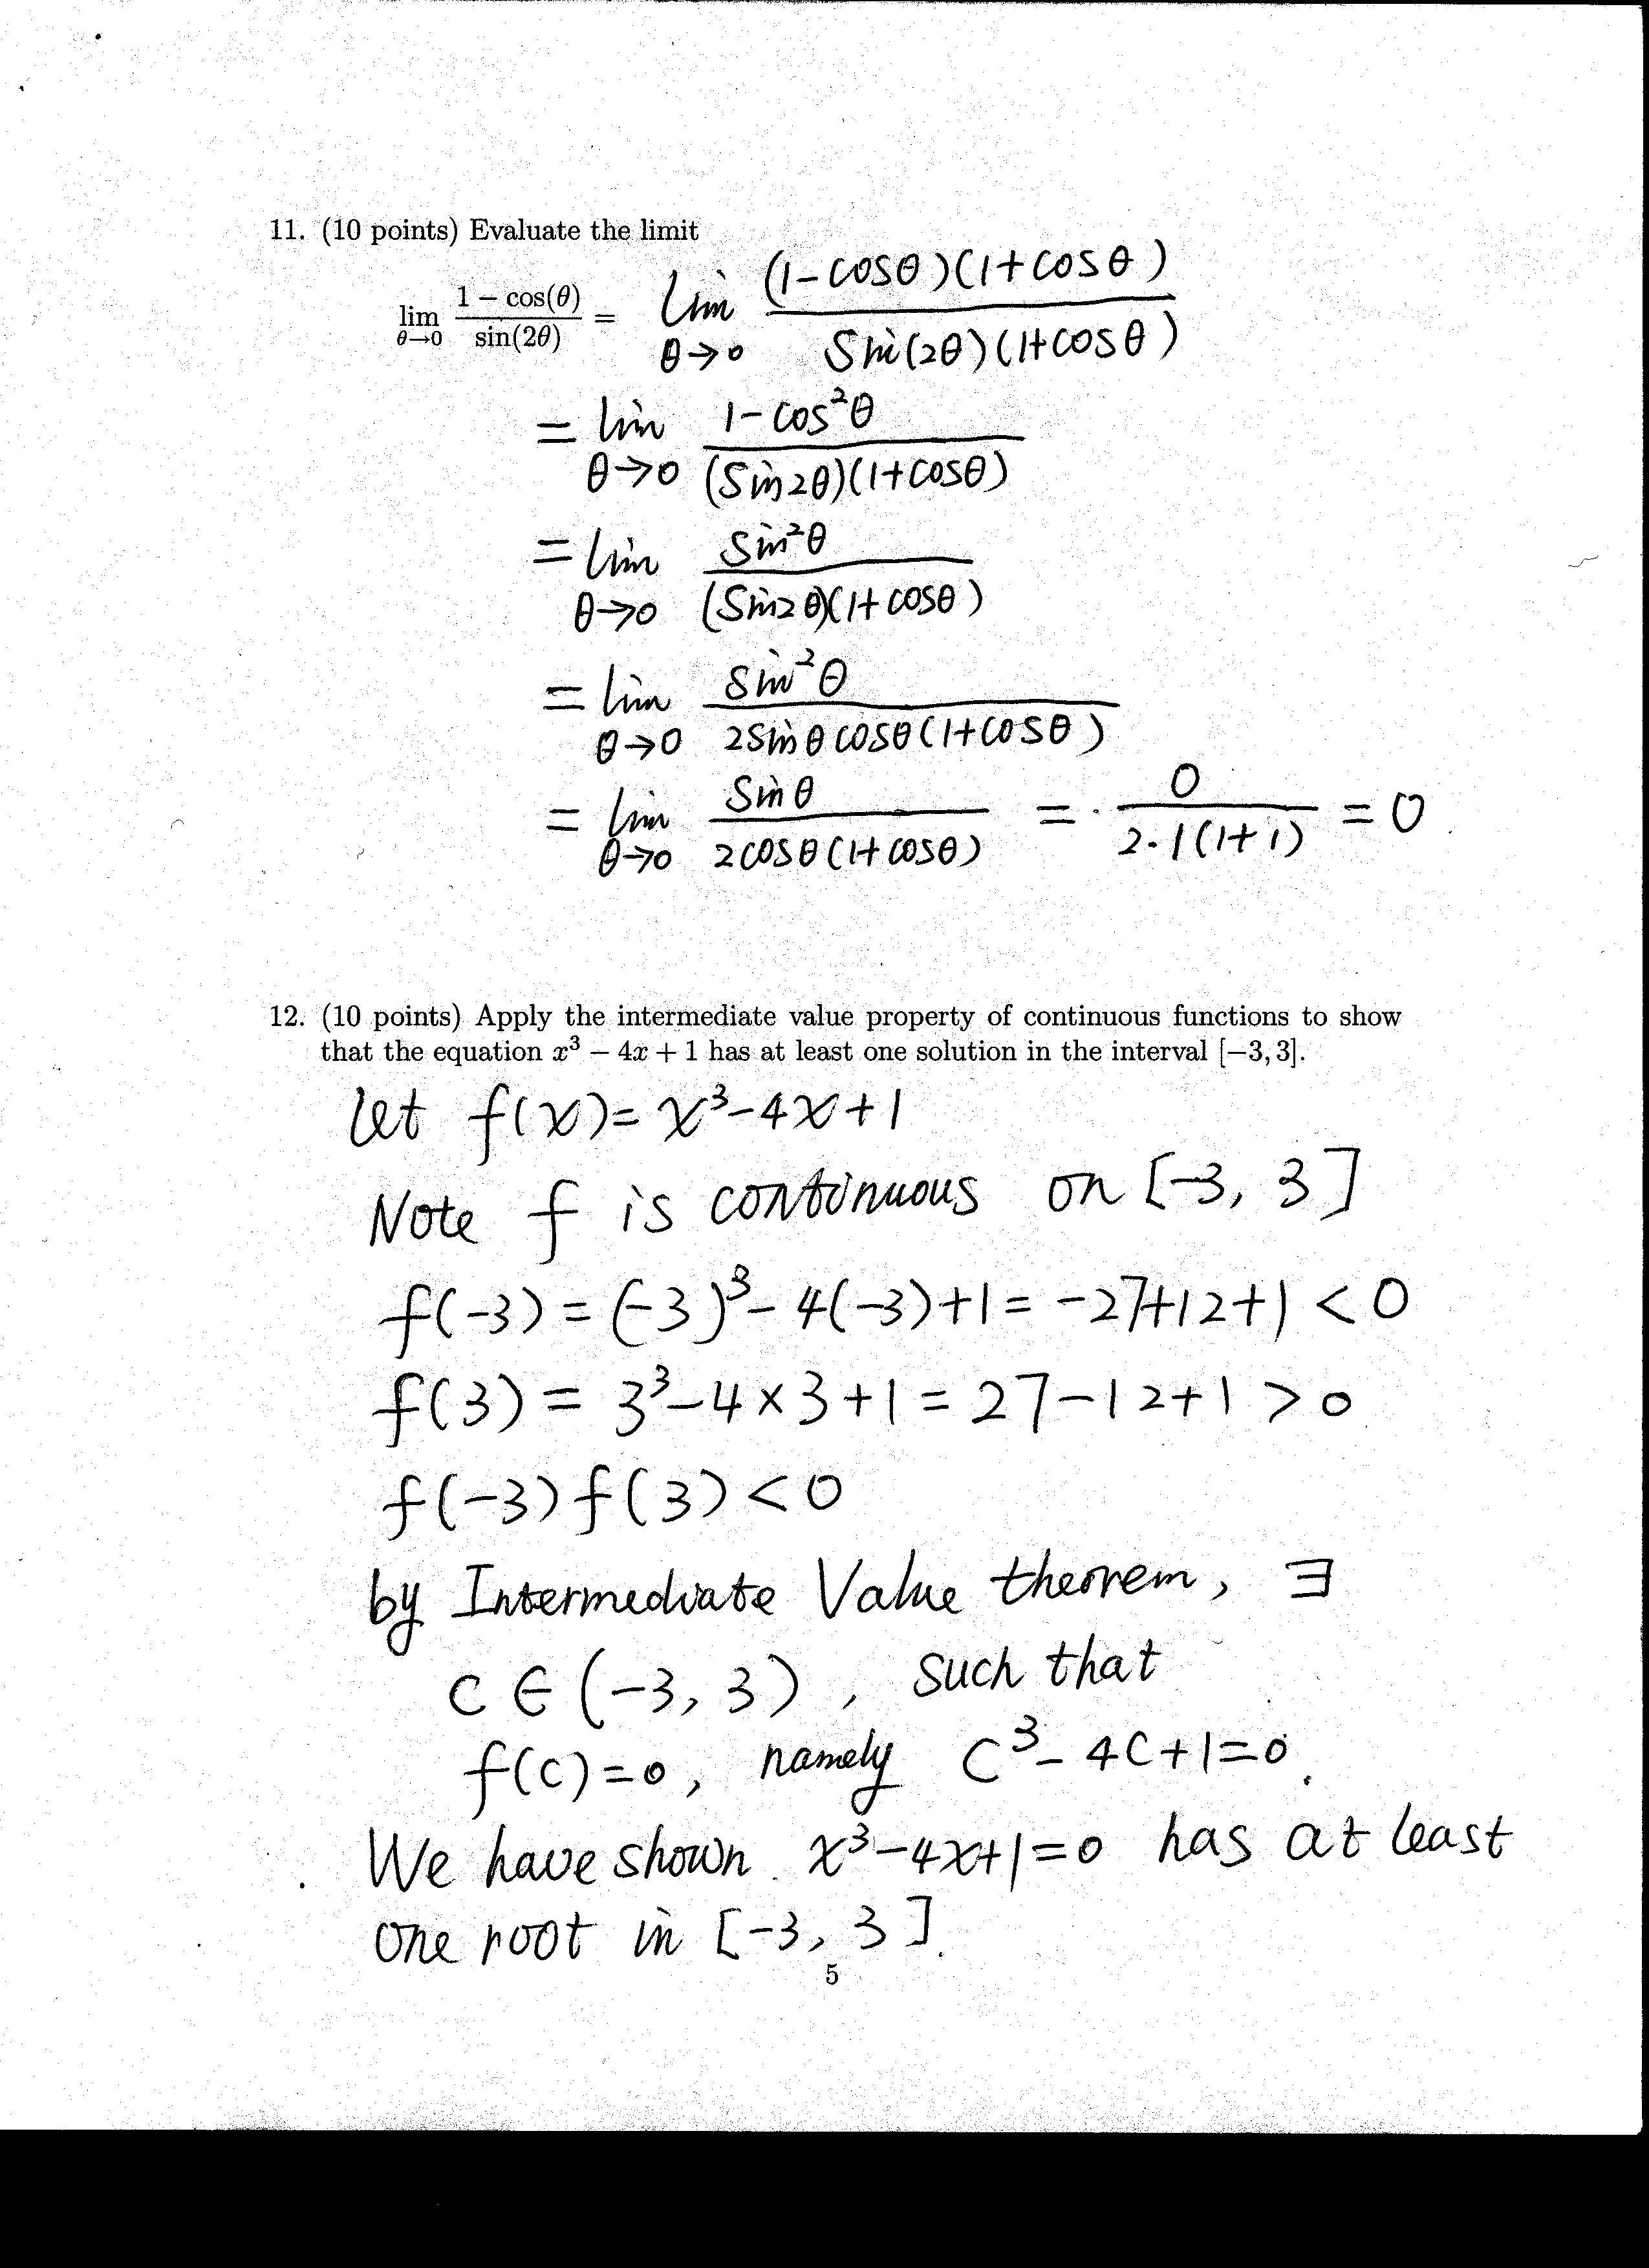 11. (10 points) Evaluate the limit
lim θ→0 (1 − cos(θ))/(sin(2θ)) = lim θ→0 ((1-cosθ)(1+cosθ))/(Sin(2θ)(1+cosθ))
= lim θ→0 (1-cos²θ)/((Sin2θ)(1+cosθ))
= lim θ→0 (Sin²θ)/((Sin2θ)(1+cosθ))
= lim θ→0 (Sin²θ)/(2Sinθcosθ(1+cosθ))
= lim θ→0 (Sinθ)/(2cosθ(1+cosθ)) = 0/(2·1(1+1)) = 0
12. (10 points) Apply the intermediate value property of continuous functions to show
that the equation x³ − 4x + 1 has at least one solution in the interval [−3, 3].
Let f(x)= x³-4x+1
Note f is continuous on [-3, 3]
f(-3) = (-3)³- 4(-3)+1 = -27+12+1 < 0
f(3) = 3³-4×3+1 = 27-12+1 > 0
f(-3)f(3)<0
by Intermediate Value theorem, ∃
c ∈ (-3, 3), such that
f(c)=0, namely c³- 4c+1=0.
We have shown x³-4x+1=0 has at least
one root in [-3, 3].
5